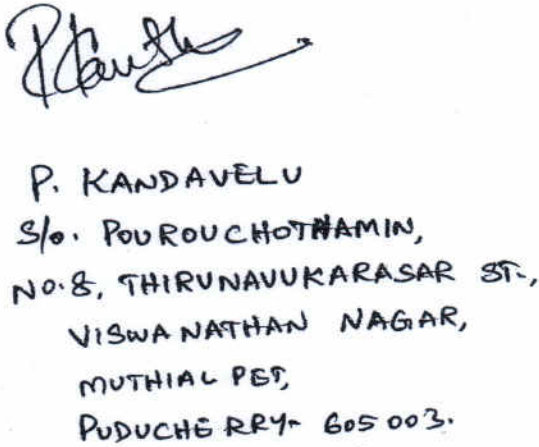 P. KANDAVELU
S/o. POUROUCHOTHAMIN,
NO.8, THIRUNAVUKARASAR ST.,
VISWANATHAN NAGAR,
MUTHIAL PET,
PUDUCHERRY- 605 003.